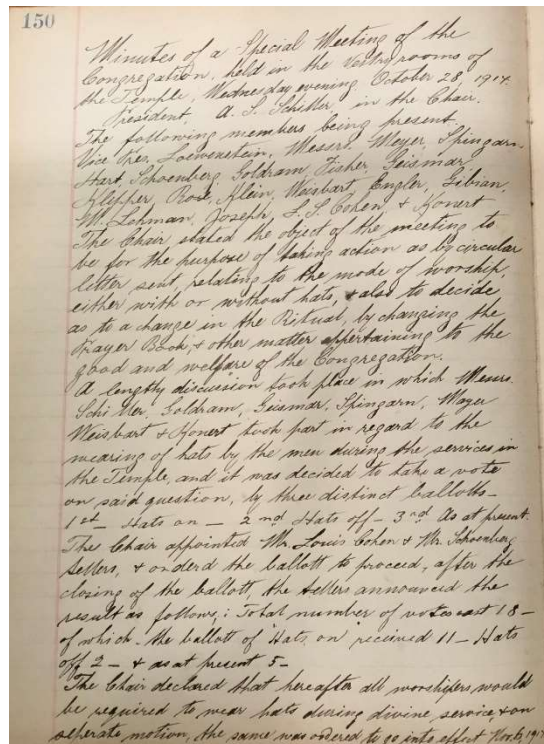 150
Minutes of a Special Meeting of the
Congregation, held in the Vestry rooms of
the Temple, Wednesday evening October 28, 1914.
President, A. S. Schiller, in the Chair.
The following members being present.
Vice Pres. Loewenstein, Messrs. Meyer, Spingarn
Hart, Schoenberg, Goldram, Fisher, Geismar,
Klipper, Rose, Klein, Weisbart, Engler, Gibian,
W. Lohman, Joseph, L. S. Cohen & Konert
The Chair stated the object of the meeting to
be for the purpose of taking action as by circular
letter sent, relating to the mode of worship,
either with or without hats, & also to decide
as to a change in the Ritual, by changing the
Prayer Book, & other matter appertaining to the
good and welfare of the Congregation.
A lengthy discussion took place in which Messrs.
Schiller, Goldram, Geismar, Spingarn, Mayer
Weisbart & Konert took part in regard to the
wearing of hats by the men during the services in
the Temple, and it was decided to take a vote
on said question, by three distinct ballotts—
1st Hats on — 2nd Hats off — 3rd As at present.
The Chair appointed Mr. Louis Cohen & Mr. Schoenberg
tellers, & orderd the ballott to proceed, after the
closing of the ballott, the tellers announced the
result as follows,: Total number of votes cast 18—
of which the ballott of Hats on received 11 — Hats
off 2 — & as at present 5—
The Chair declared that hereafter all worshipers would
be required to wear hats during divine service, & on
seperate motion, the same was ordered to go into effect Nov. 6, 191